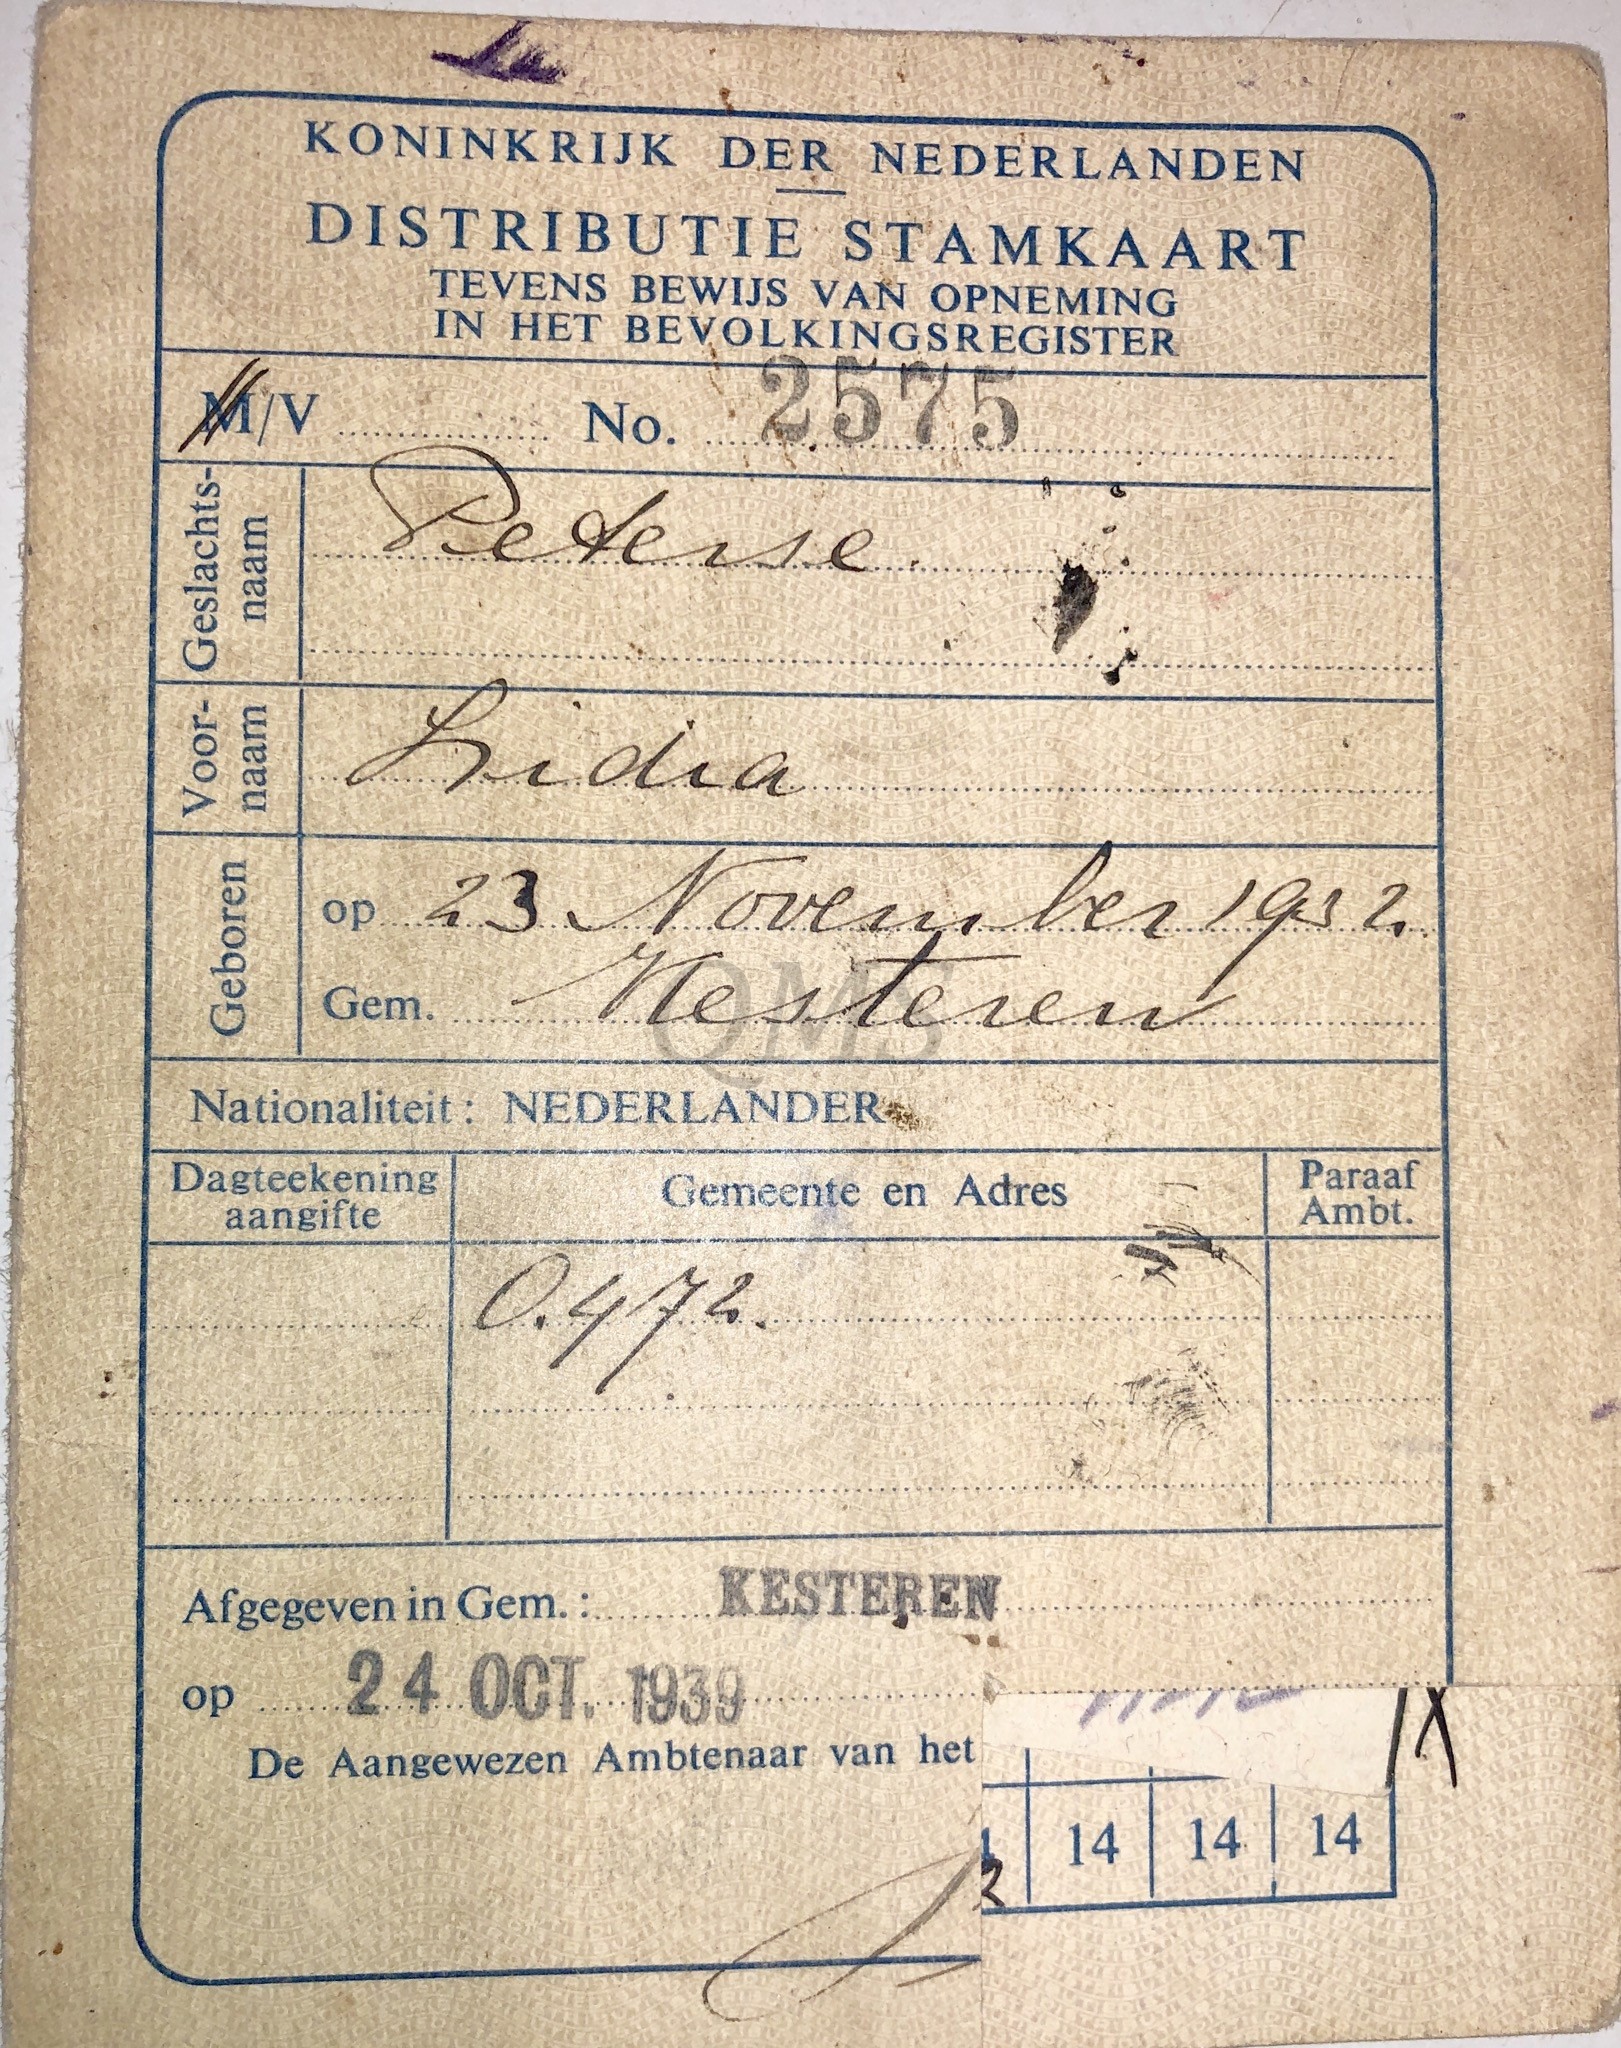 KONINKRIJK DER NEDERLANDEN
DISTRIBUTIE STAMKAART
TEVENS BEWIJS VAN OPNEMING
IN HET BEVOLKINGSREGISTER
M/V No. 2575
Geslachts-
naam
Peterse.
Voor-
naam
Lidia
Geboren
op 23 November 1932.
Gem. Kesteren
QMS
Nationaliteit: NEDERLANDER
Dagteekening
aangifte
Gemeente en Adres
Paraaf
Ambt.
O.472.
Afgegeven in Gem.: KESTEREN
op 24 OCT. 1939
De Aangewezen Ambtenaar van het
14 14 14